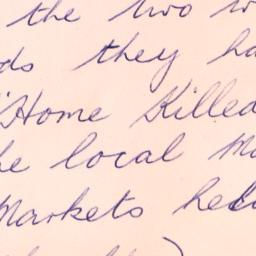 the two w
ds they ha
"Home Killed
he local Ma
Markets hel